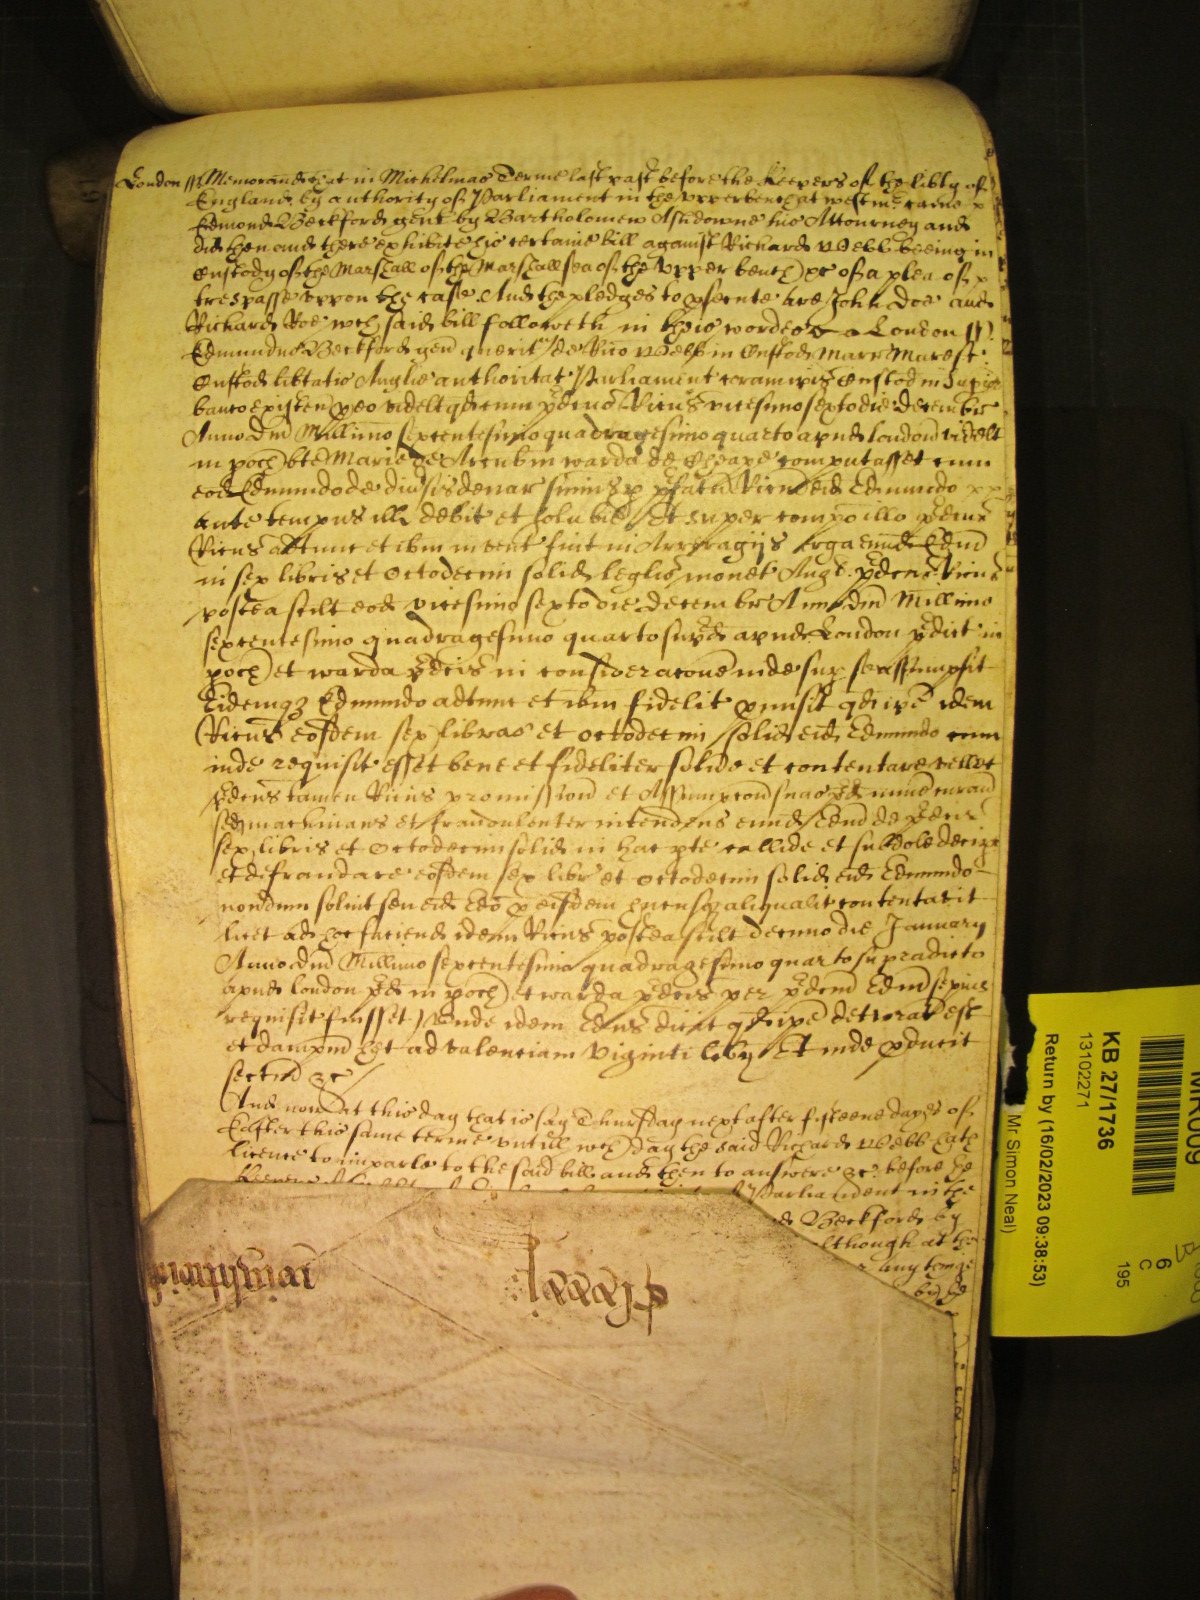 London ss Memorand that in Michelmas Terme last past before the Keepers of the libty of
England by authority of Parliament in the upper bench at westm came
Edmond Beckford gent by Bartholomew Ashdowne his Attourney and
did then and there exhibite his certaine bill against Richard Webb beeing in
Custody of the Marshall of the Marshallsea of the upper bench &c of a plea of
trespasse uppon the case And the pledges to psecute are John Doe and
Richard Roe wch said bill followeth in theis wordes London ss
Edmundus Beckford gen querit de Rico Webb in Custod Marr Maresc
Custod libtatis Anglie authoritat Parliament coram ipis Custod in supiori
banco existen p eo videlt qd cum pdcus Ricus vicesimo sexto die Decembr
Anno dni Millimo sexcentesimo quadragesimo quarto apud London videlt
in poch bte Marie de Arcubus in warda de Cheape computasset cum
eod Edmundo de divsis denar sumis p pfatu Ricu eid Edmundo
ante tempus illd debit et solubil Et super compo illo pdcus
Ricus adtunc et ibm invent fuit in Arreragijs erga eund Edmd
in sex libris et Octodecim solid leglis monet Angl pdcus Ricus
postea scilt eod vicesimo sexto die Decembr Anno dni Millimo
sexcentesimo quadragesimo quarto supd apud London pdict in
poch et warda pdcis in consideracone inde sup se assumpsit
Eidemqz Edmundo adtunc et ibm fidelit pmisit qd ipe idem
Ricus eosdem sex libras et octodecim solid eid Edmundo cum
inde requisit esset bene et fideliter solvere et contentare vellet
pdcus tamen Ricus promission et Assumpcon suas pd minime curand
sed machinans et fraudulenter intendens eund Edmd de pdcis
sex libris et Octodecim solid in hac pte callide et subdole decipe
et defraudare eosdem sex libr et octodecim solid eid Edmundo
nondum solvit seu eid Edo p eisdem hucusqz aliqualit contentavit
licet ad hoc faciend idem Ricus postea scilt decimo die January
Anno dni Millimo sexcentesimo quadragesimo quarto supradicto
apud London pd in poch et warda pdcis per pdcm Edmd sepius
requisit fuisset Unde idem Edus dicit qd ipe deteriorat est
et dampnu het ad valenciam viginti libr Et inde pducit
sectad &c
And now at this day that is say Thursday next after fifteene dayes of
Easter this same terme untill wch day the said Richard Webb hath
licence to imparle to the said bill and then to answere &c before the
Parliament in the
Beckford by
although at the
any tyme
by the
KB 27/1736
13102271
Return by (16/02/2023 09:38:53)
Mr Simon Neal)
6
C
195